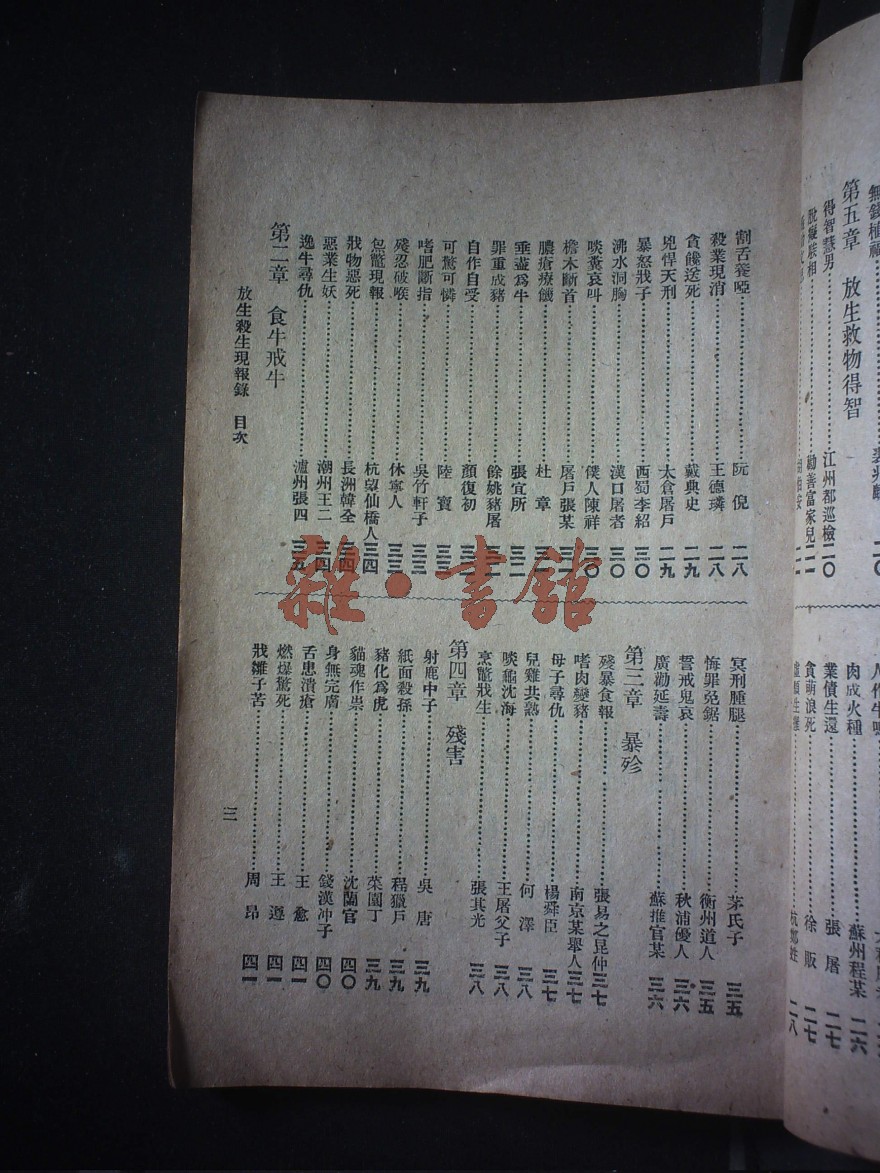 第五章　放生救物得智
得智慧男……江州都巡檢二〇
勸善富家兒二一
肉成火種……蘇州程某　二六
業債生還……張屠　二七
貪萌浪死……徐販　二七
割舌養啞……阮倪　二八
殺業現消……王德璘　二八
貪饞送死……戴典史　二九
兇悍天刑……太倉屠戶　二九
暴怒戕子……西蜀李紹　三〇
沸水洞胸……漢口屠者　三〇
啖糞哀叫……僕人陳祥　三〇
檐木斷首……屠戶張某　三一
膿瘡療饑……杜章　三一
垂盡爲牛……張宜所　三二
罪重成豬……餘姚豬屠　三二
自作自受……顏復初　三二
可驚可憐……陸寶　三三
嗜肥斷指……吳竹軒子　三三
殘忍破喉……休寧人　三三
炰鼈現報……杭望仙橋人　三四
戕物惡死……長洲韓全　三四
惡業生妖……潮州王二　三四
逸牛尋仇……瀘州張四　三五
第二章　食牛戒牛
冥刑腫腿……茅氏子　三五
悔罪免鋸……衡州道人　三五
誓戒鬼哀……秋浦優人　三六
廣勸延壽……蘇推官某　三六
第三章　暴殄
殘暴食報……張易之昆仲三七
嗜肉變豬……南京某舉人三七
母子尋仇……楊舜臣　三七
兒雞共熟……何澤　三八
啖龜沈海……王屠父子　三八
烹鼈戕生……張其光　三八
第四章　殘害
射鹿中子……吳唐　三九
紙面殺孫……程獵戶　三九
豬化爲虎……菜園丁　三九
貓魂作祟……沈蘭官　四〇
身無完膚……錢漢沖子　四〇
舌患潰瘡……王愈　四一
燃爆驚死……王遵　四一
戕雛子苦……周昂　四一
放生殺生現報錄　目次
三
雜·書館